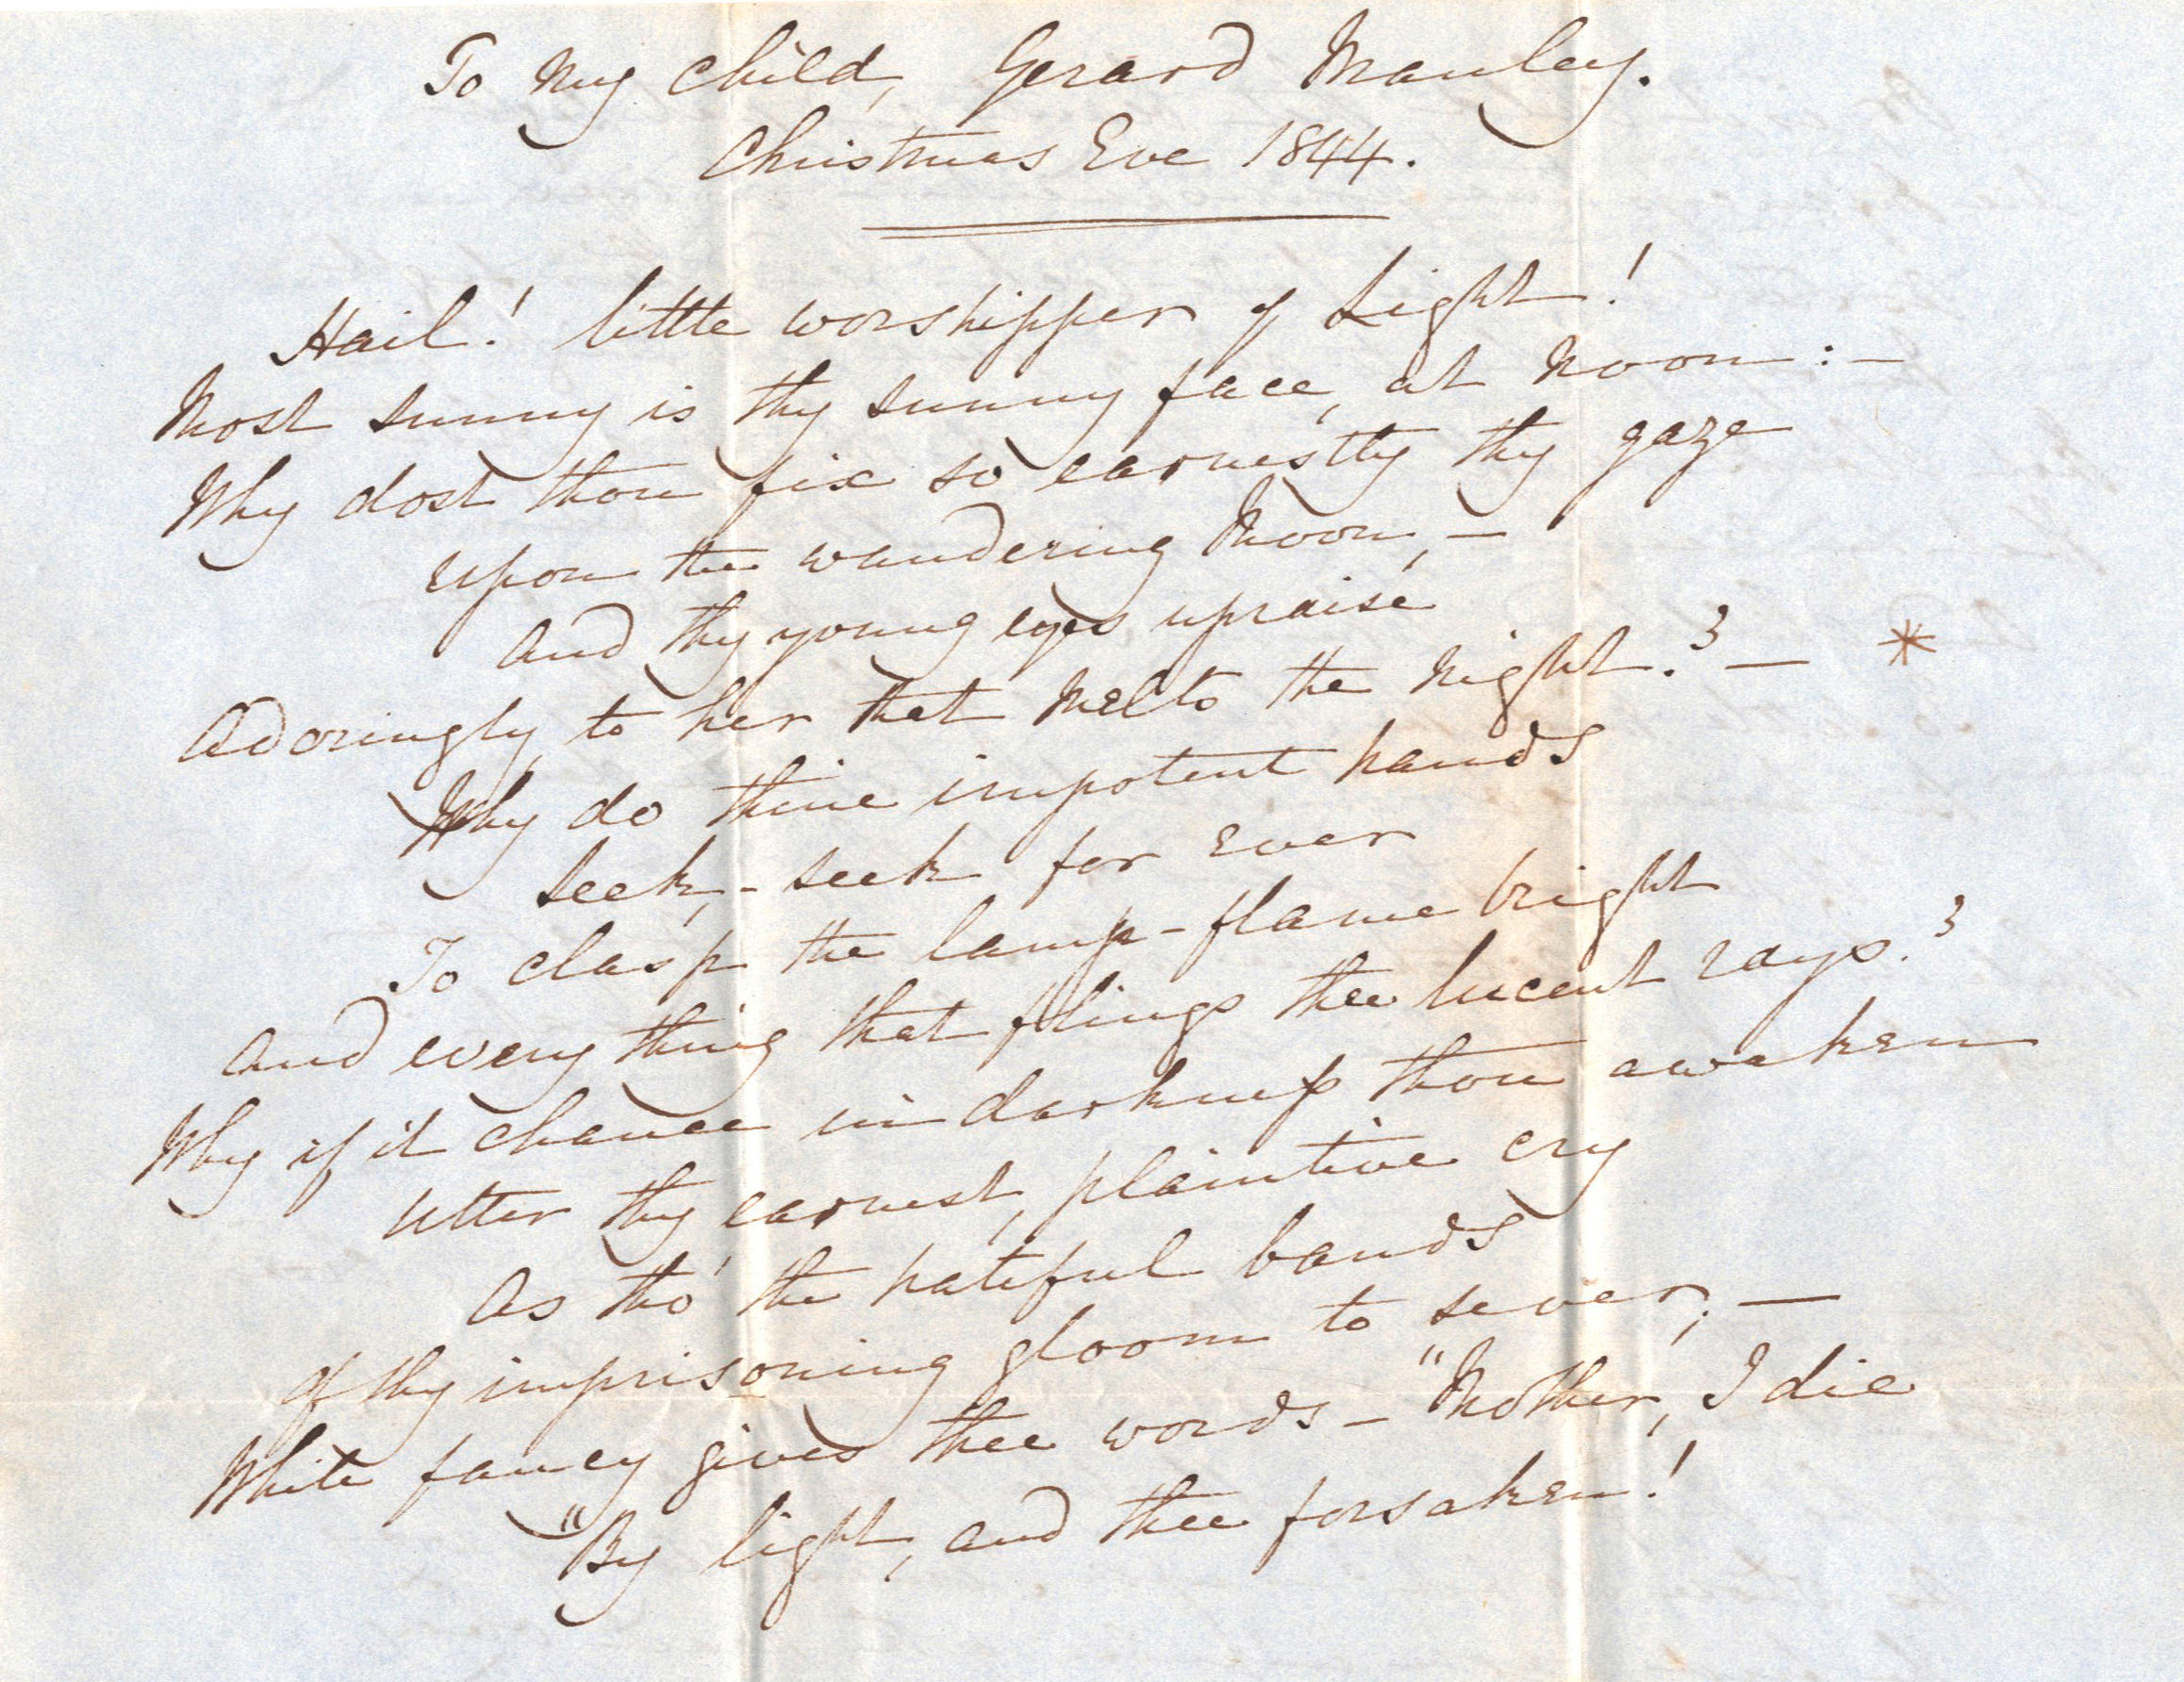 To my child, Gerard Manley.
Christmas Eve 1844.
Hail! little worshipper of Light!
Most sunny is thy sunny face, at noon:—
Why dost thou fix so earnestly thy gaze
Upon the wandering Moon,—
And thy young eyes upraise
Adoringly, to her that melts the night?— *
Why do thine impotent hands
Seek,- seek for ever
To clasp the lamp-flame bright
And every thing that flings thee lucent rays?
Why if it chance in darkness thou awaken
Utter thy earnest, plaintive cry
As tho' the hateful bands
Of thy imprisoning gloom to sever;—
White fancy gives thee words – "Mother, I die
"By light, and thee forsaken!